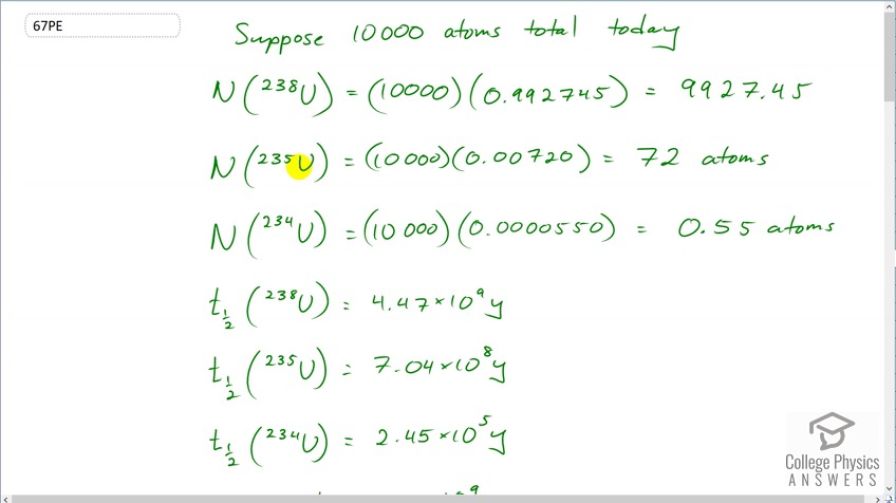 67PE
Suppose 10000 atoms total today
N(²³⁸U) = (10000)(0.992745) = 9927.45
N(²³⁵U) = (10000)(0.00720) = 72 atoms
N(²³⁴U) = (10000)(0.0000550) = 0.55 atoms
t½(²³⁸U) = 4.47×10⁹y
t½(²³⁵U) = 7.04×10⁸y
t½(²³⁴U) = 2.45×10⁵y
College Physics
ANSWERS